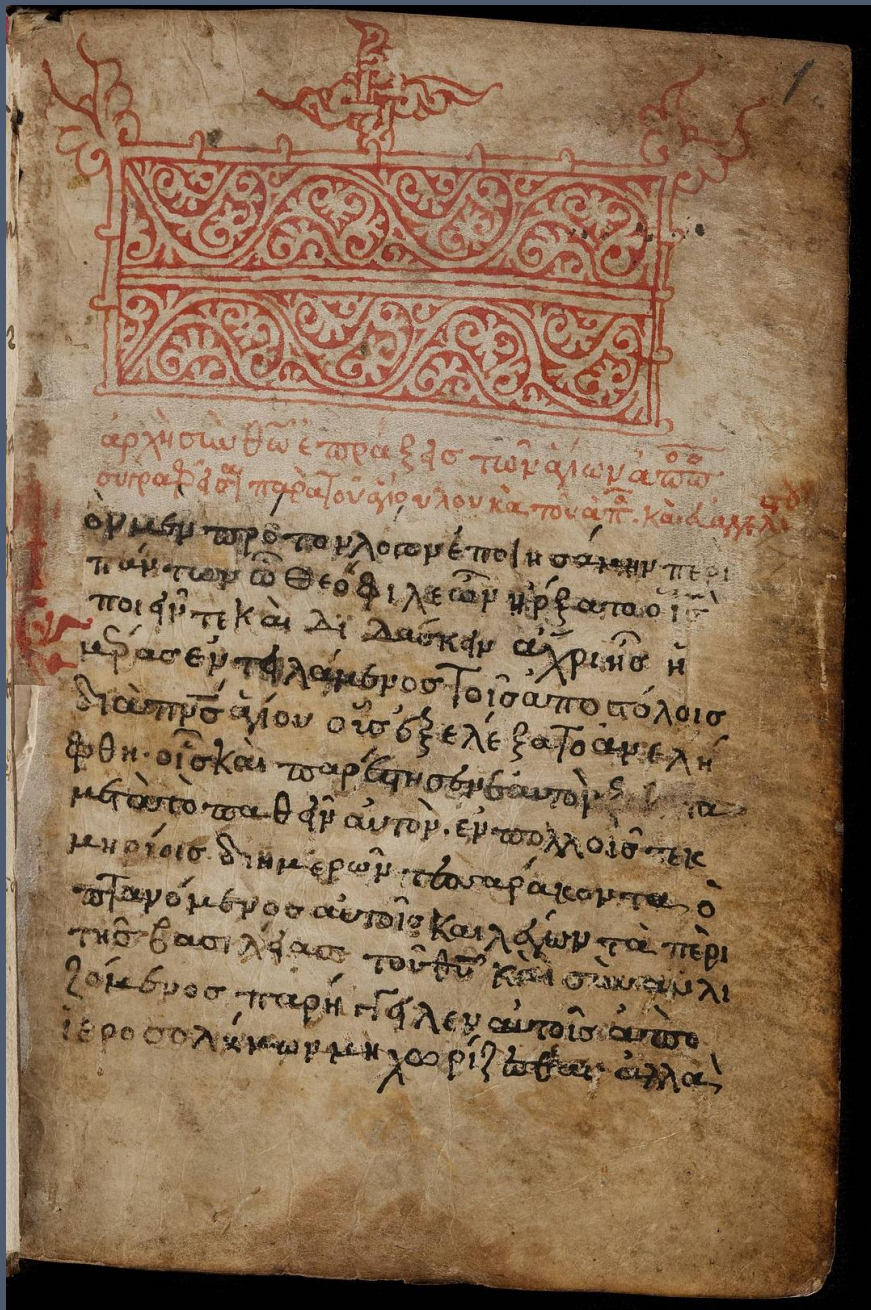 1
ἀρχὴ σὺν θῶ ἑ πράξεις τῶν ἁγίων ἀπο
παρὰ τοῦ ἁγίου λουκα του ἀπ. καὶ
ὸν μὲν πρῶτον λόγον ἐποιησάμην περι
πάντων ὦ Θεόφιλε ὧν ἤρξατο ὁ ις
ποιεῖν τε καὶ διδάσκειν ἄχρι ἧς ἡ
μέρας ἐντειλάμενος τοῖς ἀποστόλοις
διὰ πνς ἁγίου οὓς ἐξελέξατο ἀνελή
φθη. οἷς καὶ παρέστησεν ἑαυτὸν
μετὰ τὸ παθεῖν αὐτὸν. ἐν πολλοῖς τεκ
μηρίοις δι ημερῶν τεσσαράκοντα ὀ
πτανόμενος αὐτοῖς καὶ λέγων τὰ περι
τῆς βασιλείας τοῦ θυ καὶ συναυλι
ζόμενος παρήγγειλεν αὐτοῖς ἀπο
ἱεροσολύμων μὴ χωρίζεσθαι ἀλλὰ